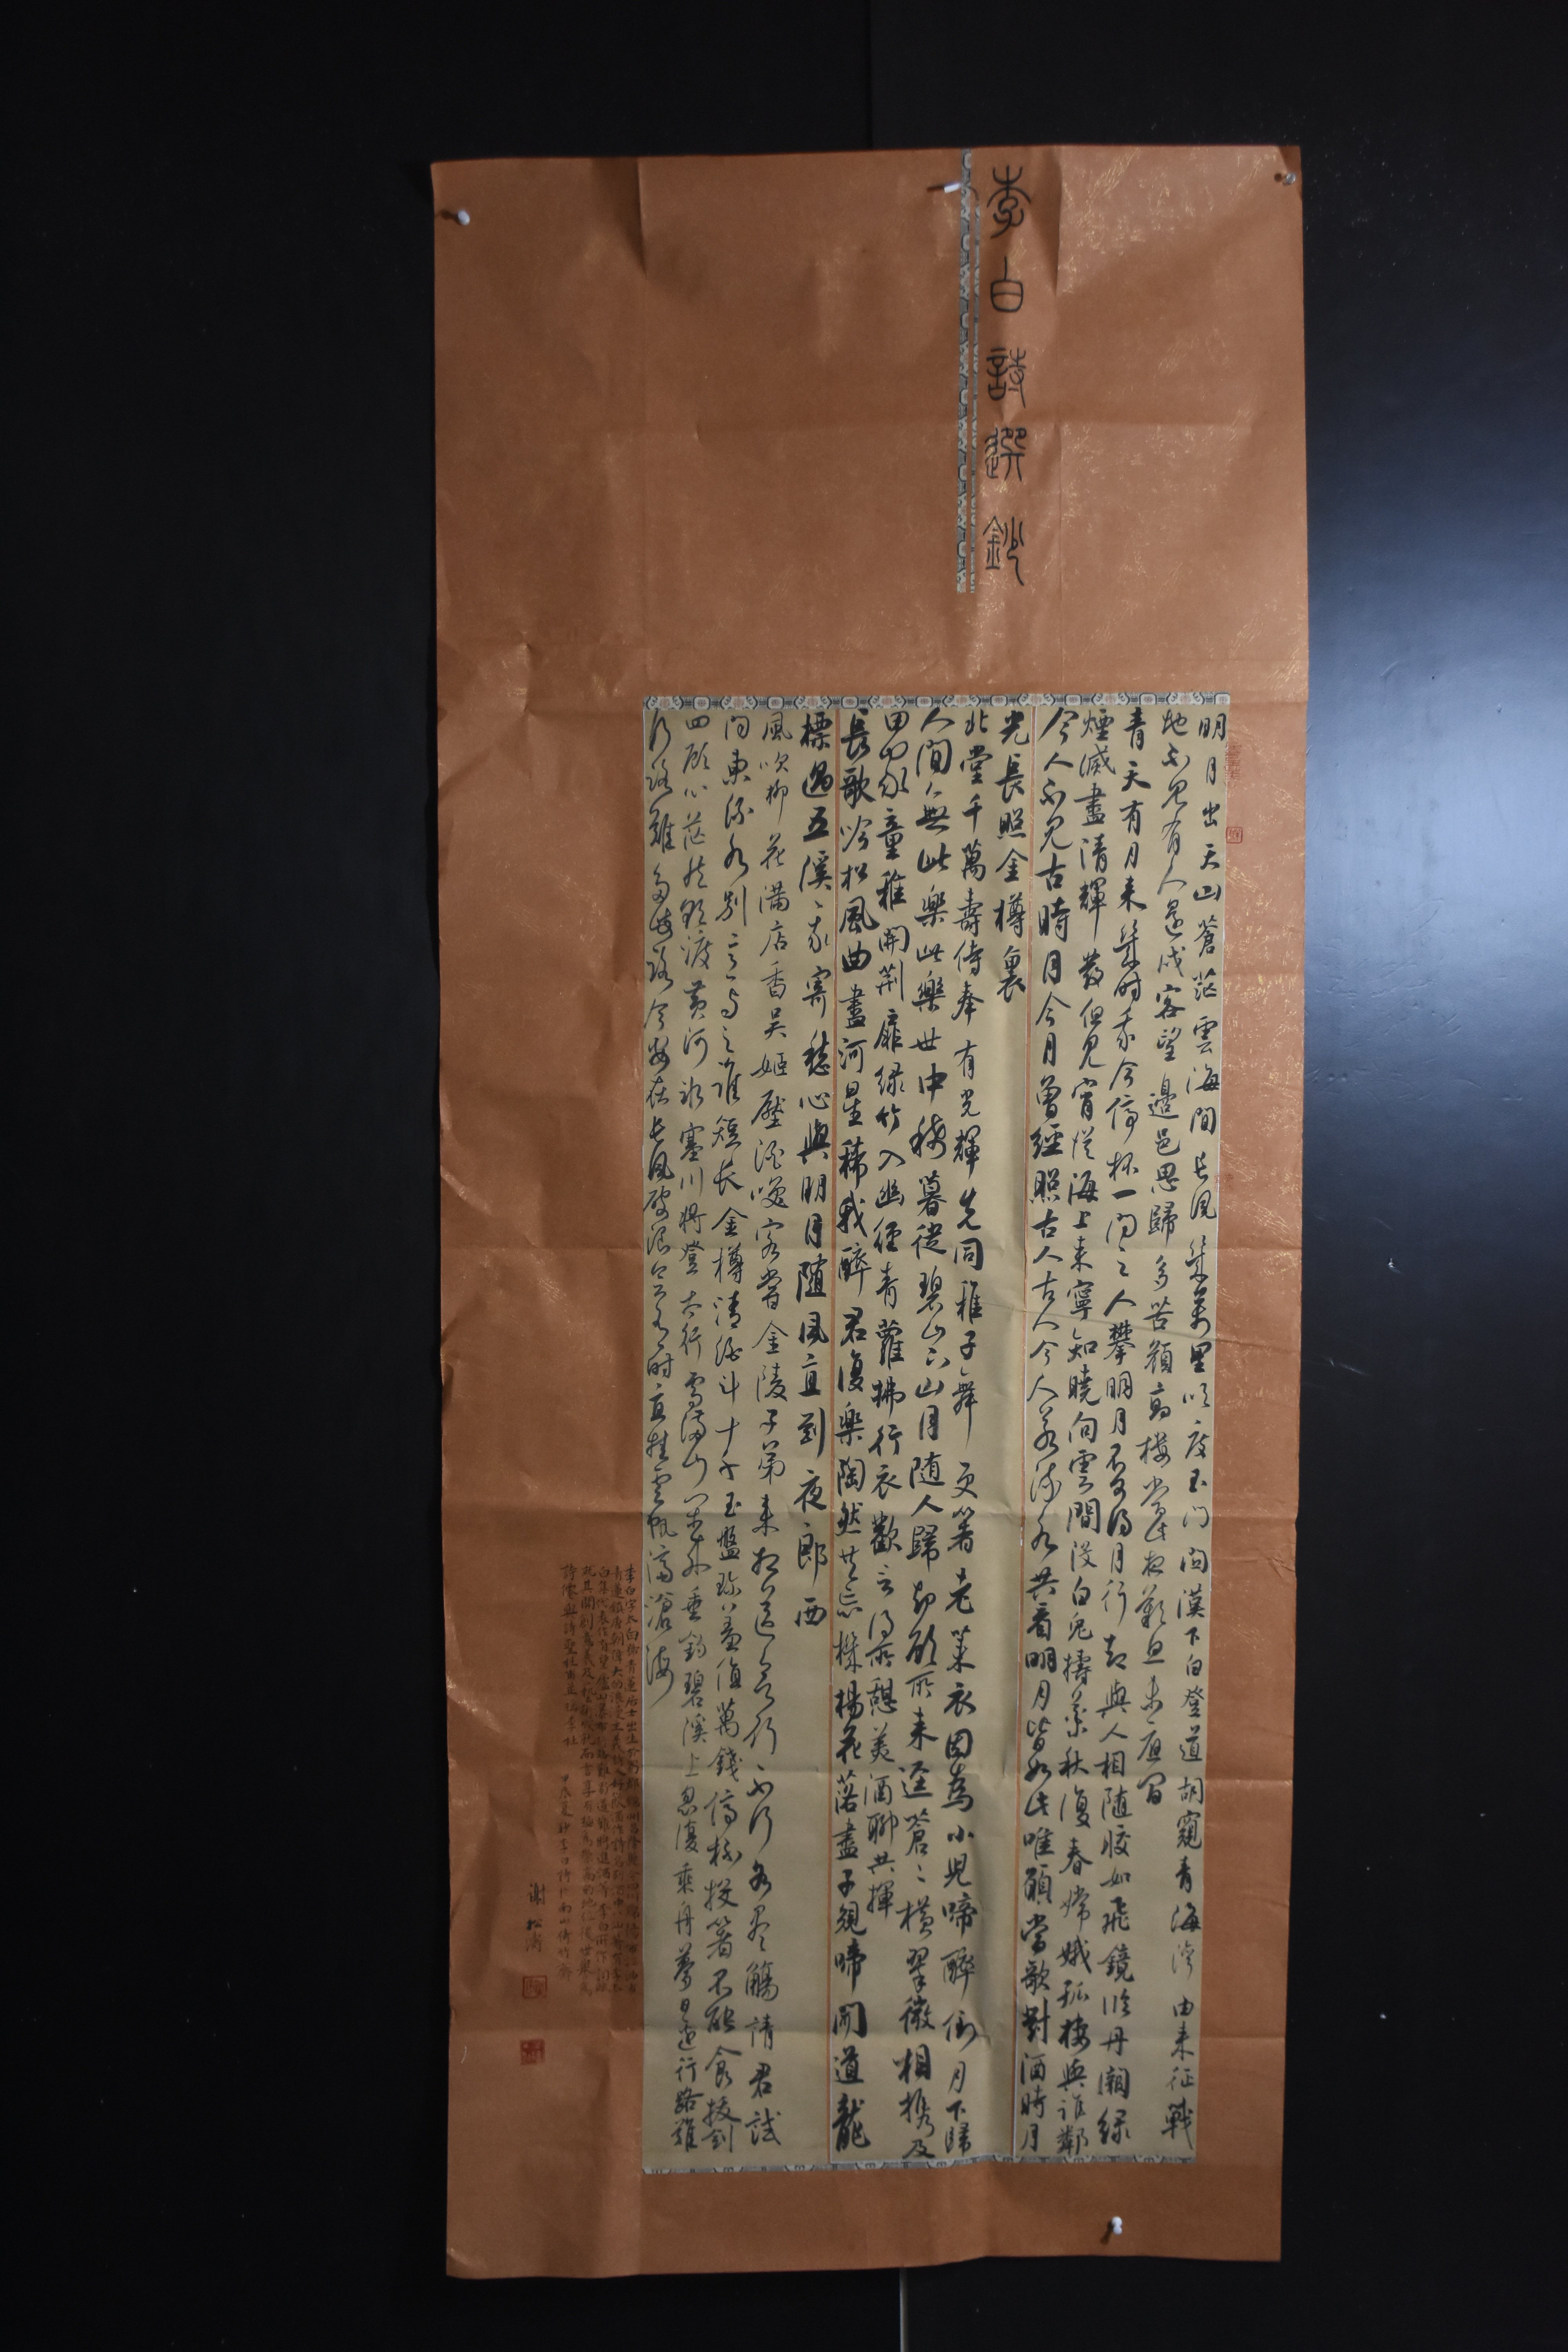 李白詩選鈔
明月出天山蒼茫雲海間長風幾萬里吹度玉門関漢下白登道胡窺青海灣由来征戰
地不見有人還戍客望邊邑思歸多苦顏高樓當此夜歎息未應閒
青天有月来幾時我今停杯一問之人攀明月不可得月行却與人相隨皎如飛鏡臨丹闕緑
煙滅盡清輝發但見宵從海上来寧知曉向雲間沒白兔擣藥秋復春嫦娥孤棲與誰鄰
今人不見古時月今月曾經照古人古人今人若流水共看明月皆如此唯願當歌對酒時月
光長照金樽裏
北堂千萬壽侍奉有光輝先同稚子舞更著老萊衣因為小兒啼醉倒月下歸
人間無此樂此樂世中稀暮從碧山下山月隨人歸却顧所来逕蒼〻橫翠微相攜及
田家童稚開荊扉緑竹入幽徑青蘿拂行衣歡言得所憩美酒聊共揮
長歌吟松風曲盡河星稀我醉君復樂陶然共忘機楊花落盡子規啼聞道龍
標過五溪〻我寄愁心與明月隨風直到夜郎西
風吹柳花滿店香吳姬壓酒喚客嘗金陵子弟来相送欲行不行各盡觴請君試
問東流水別意與之誰短長金樽清酒斗十千玉盤珍羞值萬錢停杯投箸不能食拔劍
四顧心茫然欲渡黃河冰塞川將登太行雪滿山閒来垂釣碧溪上忽復乘舟夢日邊行路難
行路難多歧路今安在長風破浪會有時直挂雲帆濟滄海
李白字太白號青蓮居士
謝松濤